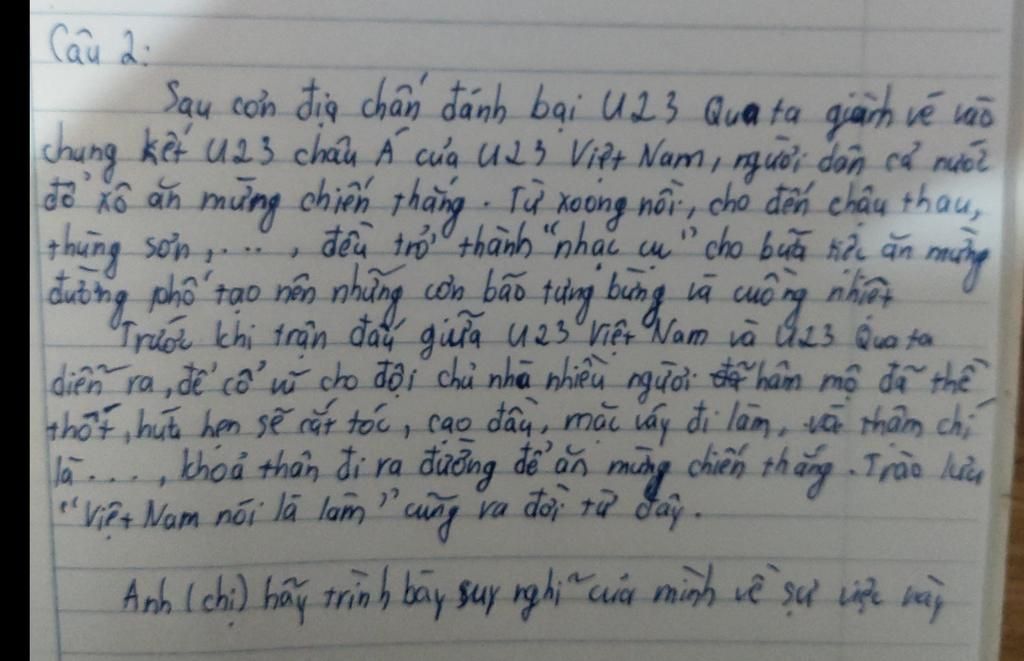 Câu 2:
Sau cơn địa chấn đánh bại U23 Quata giành vé vào
chung kết U23 châu Á của U23 Việt Nam, người dân cả nước
đổ xô ăn mừng chiến thắng. Từ xoong nồi, cho đến chậu thau,
thùng sơn,...., đều trở thành "nhạc cụ" cho bữa tiệc ăn mừng
đường phố tạo nên những cơn bão tưng bừng và cuồng nhiệt
Trước khi trận đấu giữa U23 Việt Nam và U23 Quata
diễn ra, để cổ vũ cho đội chủ nhà nhiều người hâm mộ đã thề
thốt, hứa hẹn sẽ cắt tóc, cạo đầu, mặc váy đi làm, và thậm chí
là...., khoả thân đi ra đường để ăn mừng chiến thắng. Trào lưu
"Việt Nam nói là làm" cũng ra đời từ đây.
Anh (chị) hãy trình bày suy nghĩ của mình về sự việc này